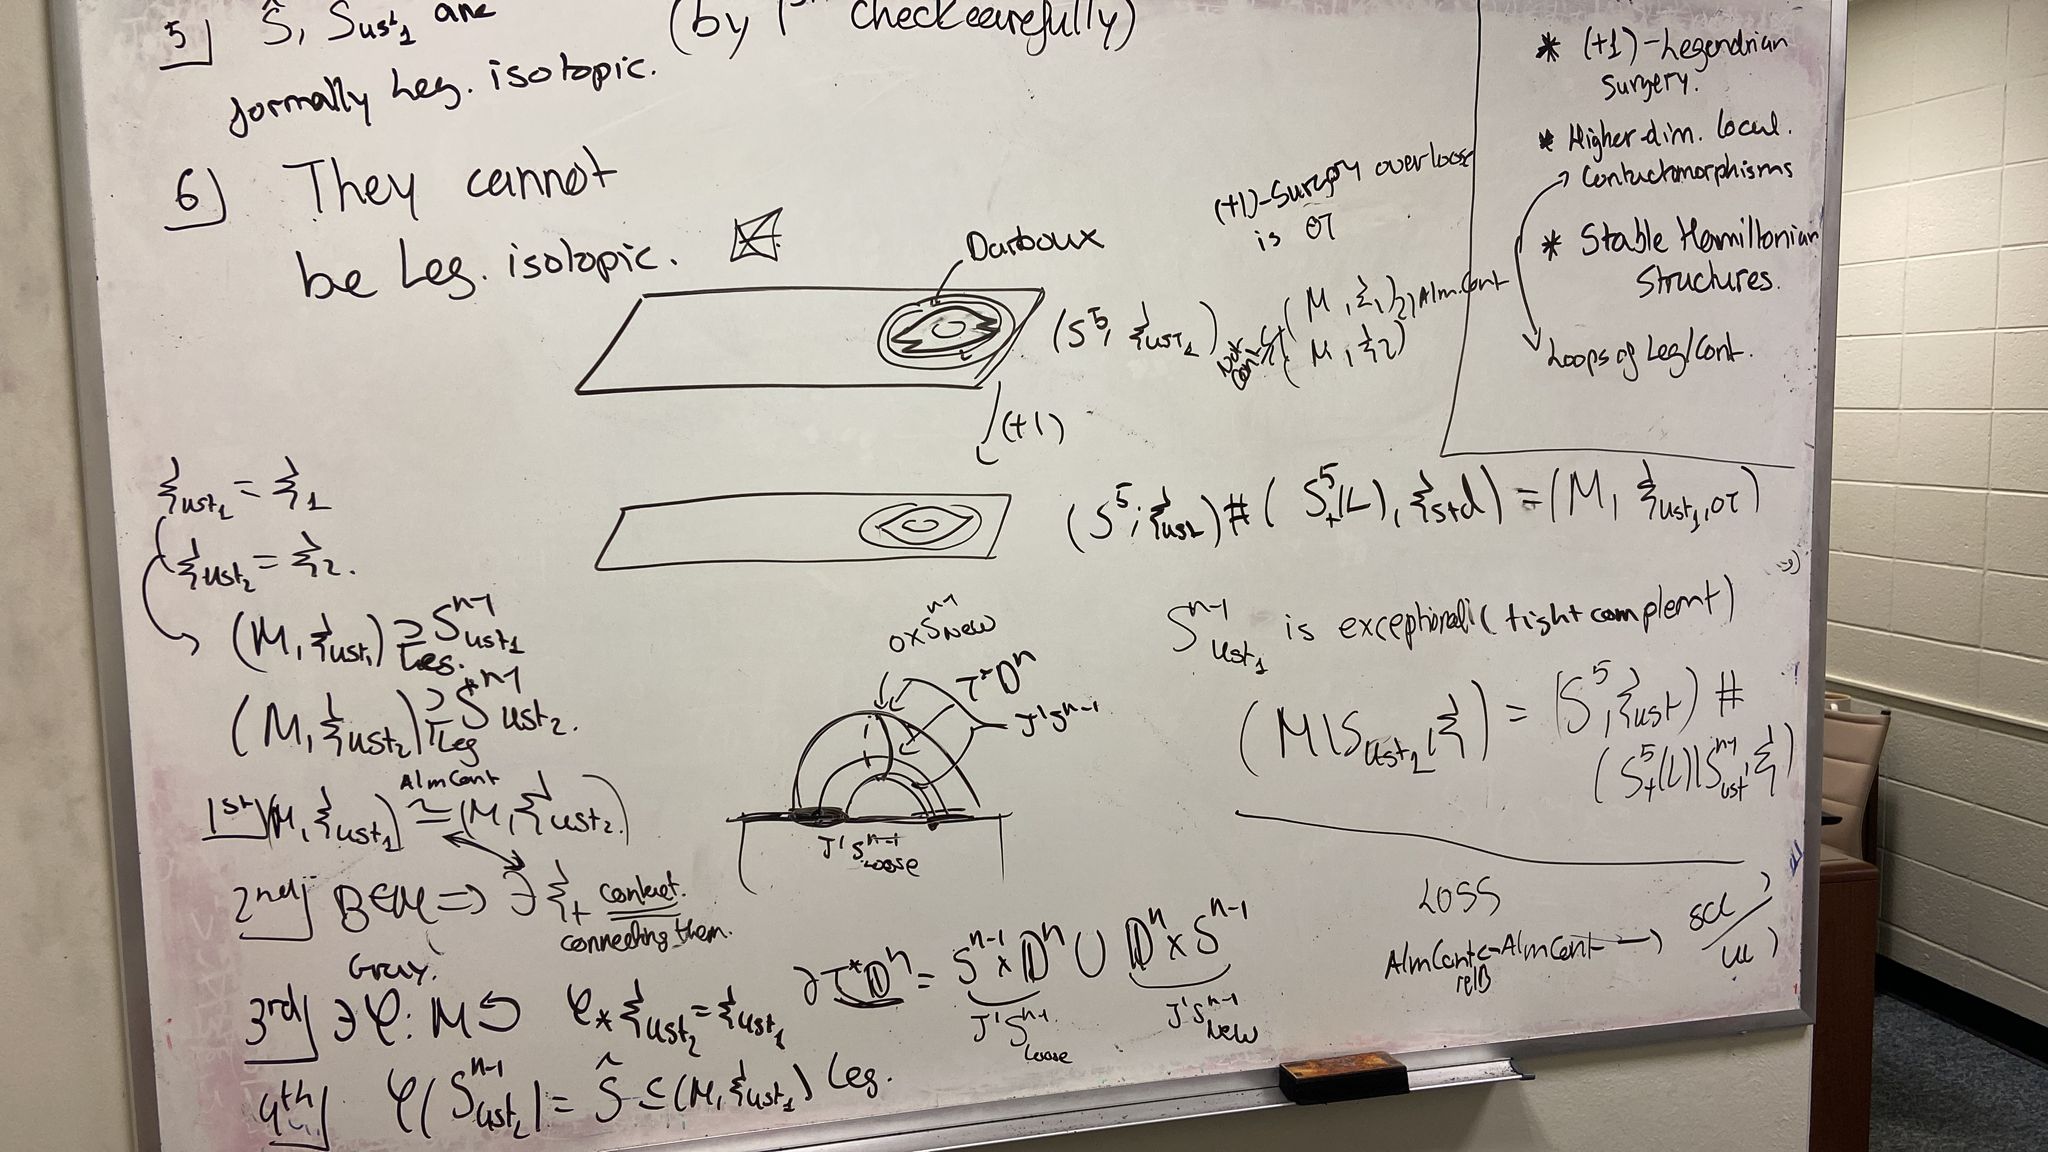 5] Ŝ, S_ust1 are (by 1st check carefully)
formally Leg. isotopic.
6] They cannot
be Leg. isotopic.
Darboux
(+1)-Surgery over loose
is OT
(S^5, ξ_ust1)
Not Cont.
(M, ξ_1) Alm.Cont
(M, ξ_2)
(+1)
(S^5, ξ_ust) # (S^5_+(L), ξ_std) = (M, ξ_ust1, OT)
* (+1)-Legendrian
surgery.
* Higher-dim. local.
Contactomorphisms
* Stable Hamiltonian
Structures.
Loops of Leg/Cont.
ξ_ust1 = ξ_1
ξ_ust2 = ξ_2.
(M, ξ_ust1) ⊇ S^n-1_ust1
Leg.
(M, ξ_ust2) ⊇ S^n-1_ust2.
Leg
AlmCont
1st] (M, ξ_ust1) ≃ (M, ξ_ust2)
2nd] BEM ⇒ ∃ ξ_t contact.
connecting them.
Gray.
3rd] ∃ φ: M↺ φ_* ξ_ust2 = ξ_ust1
4th] φ(S^n-1_ust2) = Ŝ ⊆ (M, ξ_ust1) Leg.
0×S^n-1_New
T*D^n
J^1S^n-1
J^1S^n-1_Loose
∂T*D^n = S^n-1 × D^n ∪ D^n × S^n-1
J^1S^n-1_Loose
J^1S^n-1_New
S^n-1_ust1 is exceptional (tight complemt)
(M\S_ust1, ξ) = (S^5, ξ_ust) #
(S^5_+(L)\S^n-1_ust, ξ)
LOSS
AlmCont
AlmCont
relB